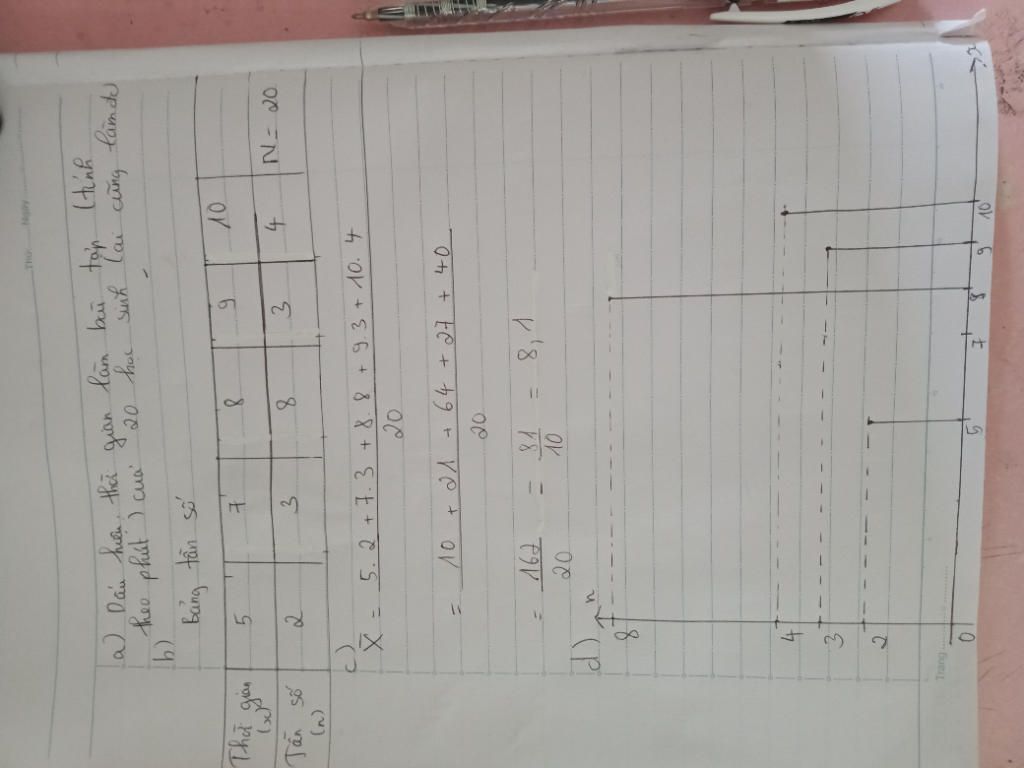 Thứ Ngày
a) Dấu hiệu: thời gian làm bài tập (tính
theo phút) của 20 học sinh lại cùng làm
b)
bảng tần số
Thời gian (x) 5 7 8 9 10
Tần số (n) 2 3 8 3 4 N = 20
c)
X̄ = 5.2 + 7.3 + 8.8 + 9.3 + 10.4 / 20
= 10 + 21 + 64 + 27 + 40 / 20
= 162/20 = 81/10 = 8,1
d)
n
8
4
3
2
0 5 7 8 9 10 x
Trang